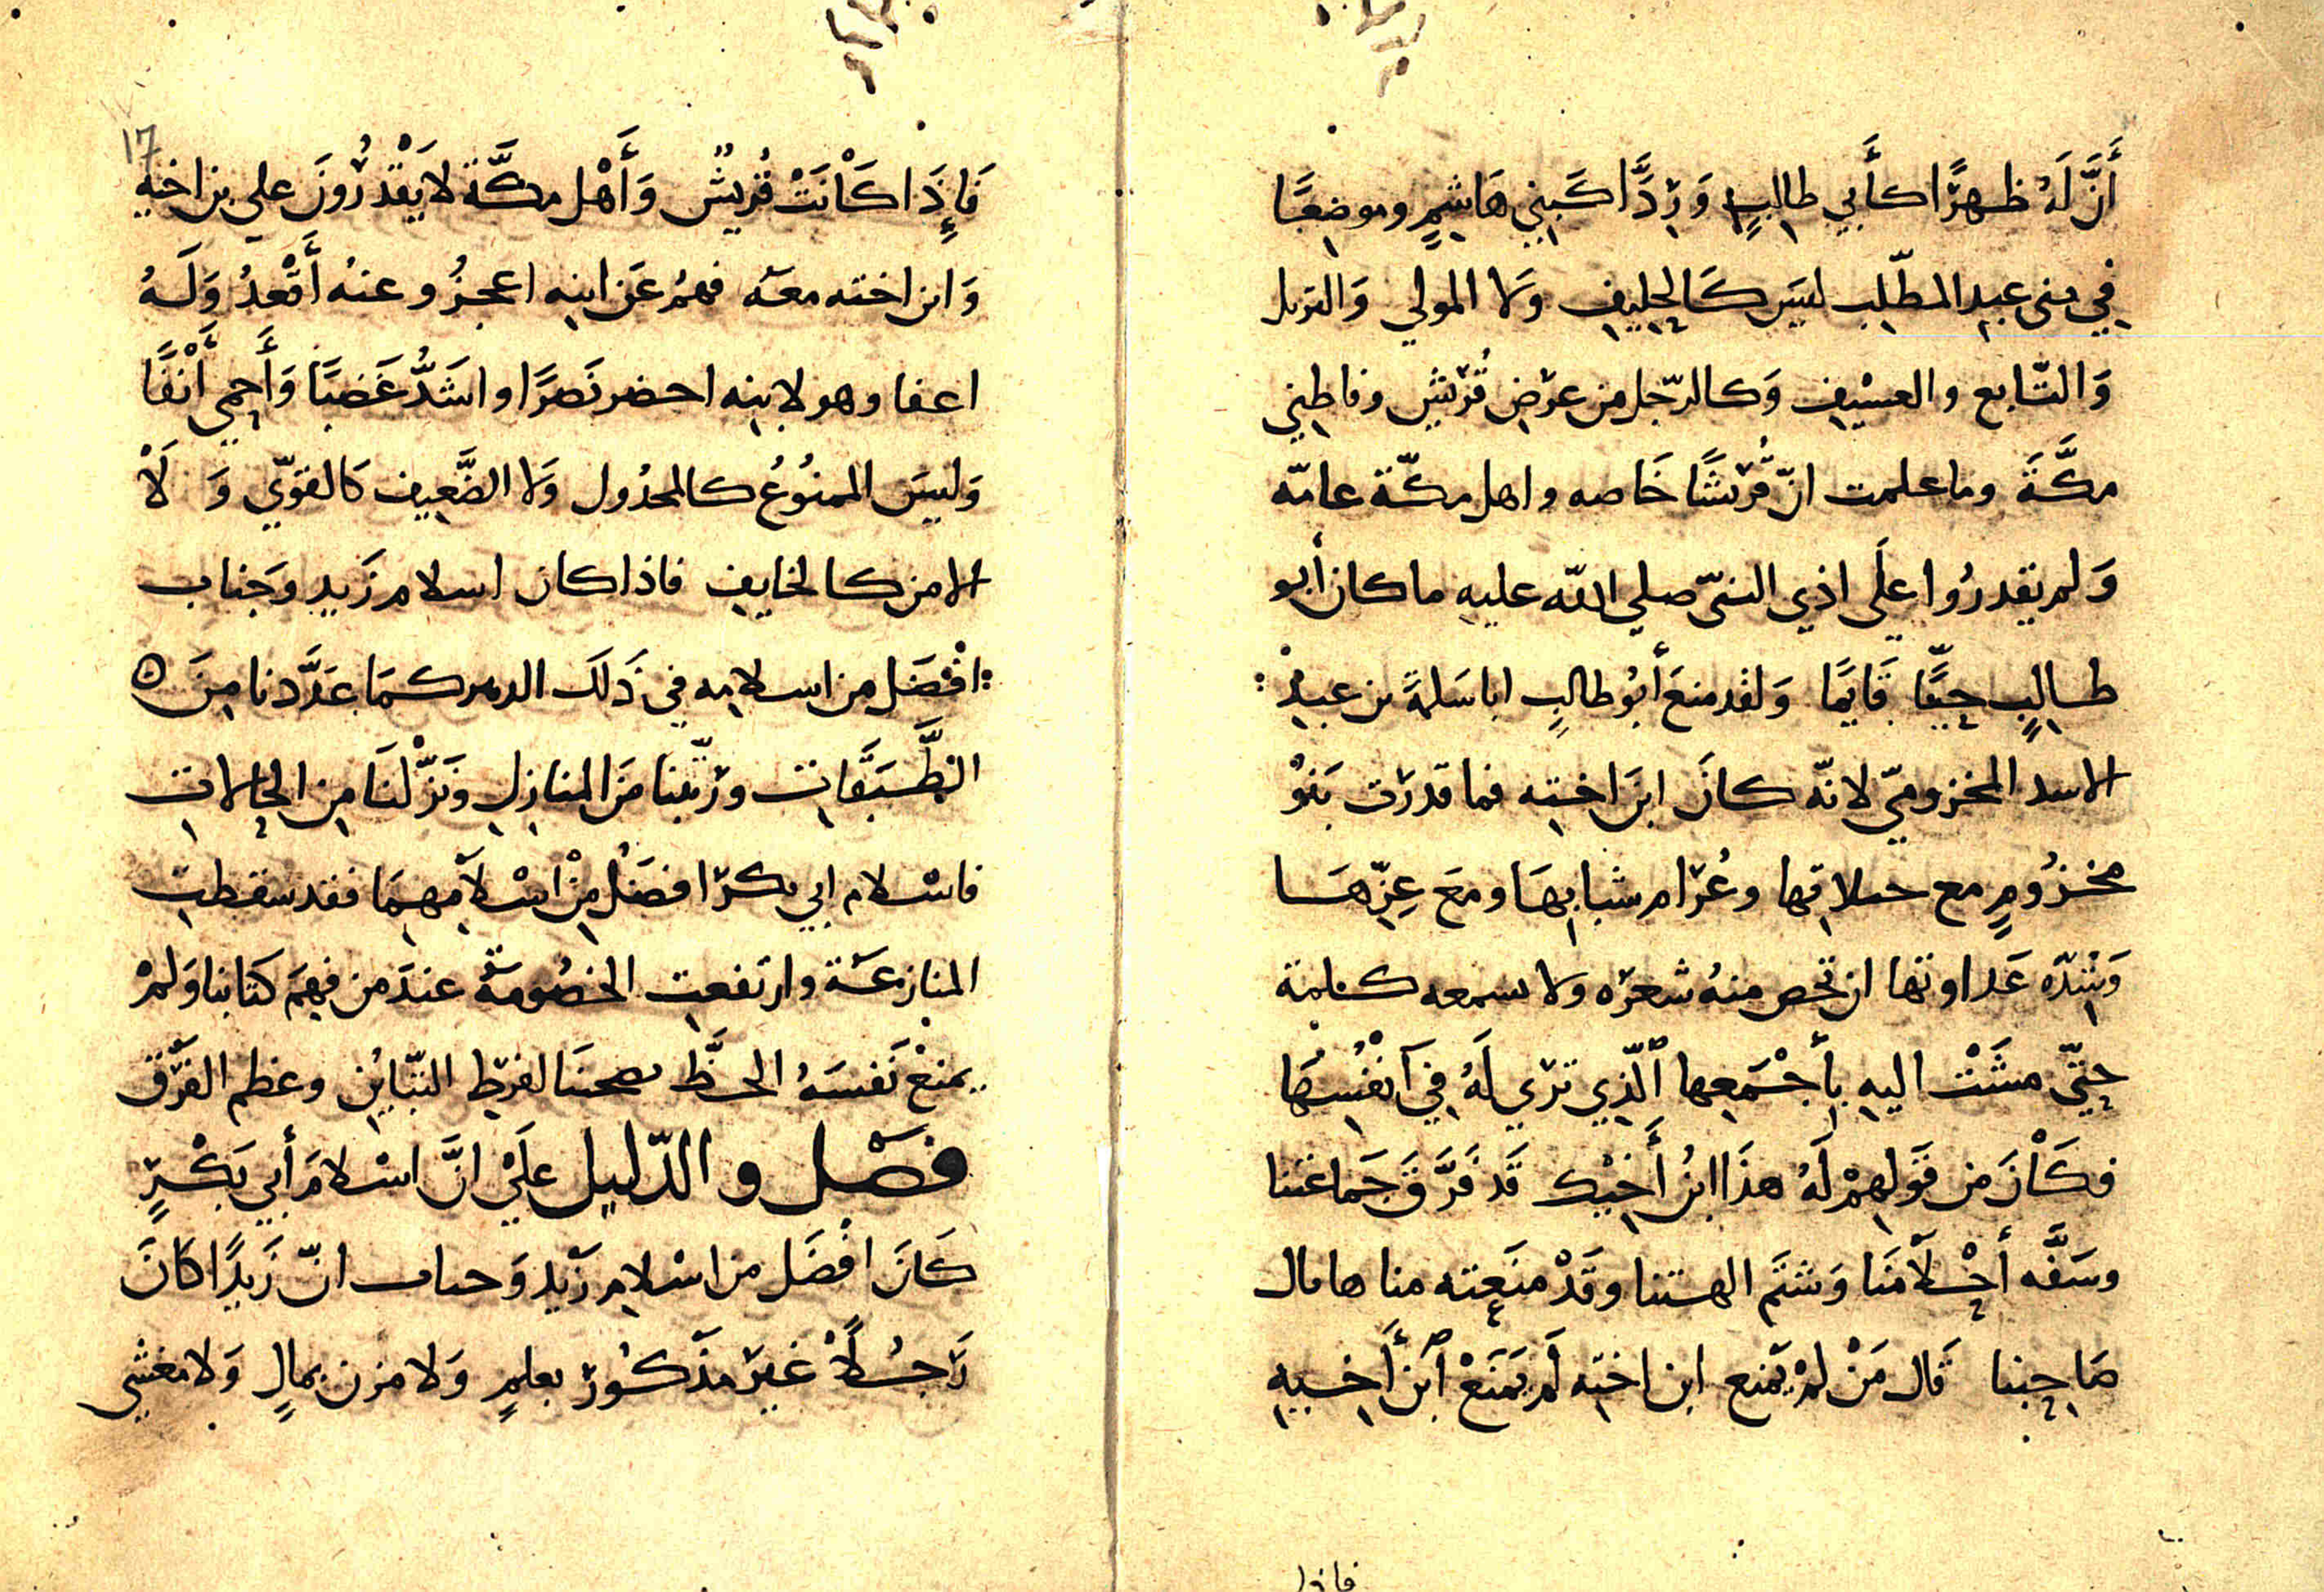 أَنَّ لَهُ ظهرًا كأَبي طالبٍ وَرِدًّا كَبني هَاشمٍ وموضعًا
في بنى عبد المطّلب ليسَ كَالحليف ولا المولي وَالنزيل
وَالتّابع والعسْيف وَكالرّجل من عرْض قُرَيش وقاطني
مكَّةَ وما علمت انّ قُرَيشًا خَاصه واهل مكّة عامّه
وَلم يقدرُوا علَي اذي النبيّ صلي الله عليه ما كان أبو
طالبٍ حيًّا قَايمًا وَلقد منعَ أبُو طالبٍ ابا سَلمةَ بن عبد
الاسد المخزوميّ لانّه كانَ ابنَ اخته فما قدرَت بَنوُ
مخزُومٍ مع حىلاقها وعُرَام شبابهَا ومعَ عِزّهَا
وَشدّه عَداوتها ان تحص منهُ شعرَه ولا سمعه كلمة
حتّي مشَتْ اليه بأَجْمَعها الّذِي ترَي لَهُ في آنفُسهَا
فكَاْنَ من قَولهمْ لَهُ هذَا ابنُ أَخيْك قَد فَرَّقَ جَماعَتنا
وسَفَّه أحْلاَمَنَا وَشتَم الهتنا وقَدْ منَعته منا ها مال
صَاحبنا قَال مَنْ لمْ يمنع ابن اخته لَم يَمنَعْ ابنَ أَخيه
فاذا
١٦
فَإِذَا كَاْنَتْ قُرَيشٌ وَأَهْل مكَّة لا يَقْدرُوْنَ علي بن اخيه
وَابن اخته معَه فهمُ عَن ابنه اعجزُ وعنه أَقْعدُ وَلَهُ
اعفا وهو لابنه احضر نَصرًا واشَدُّ غَضبًا وَأَحمي أَنْفًا
وَليسَ الممنُوُعُ كالمخذُول وَلا الضَّعيف كَالقويّ وَلَاْ
الامن كالخايف فاذا كان اسلام زَيد وَجناب
افْضَل من اسلامه في ذَلَك الدهر كمَا عَدَّدنا منَ
الطَّبَقَات ورَتّبنا مَن المنازل ونَزّلْنَا من الحالات
فاسْلام ابي بكرَ افضَلُ مِنْ اسْلاَمهمَا فقد سقطت
المنازعَة وارتفعت الخصُومَة عندَ من فهمَ كتَابنا وَلمْ
يمنعْ نَفسَهُ الحظَّ بصحتنَا لفرَط التبّايُن وعظم الفَرْق
فصَل والدّليل علَيْ انَّ اسْلامَ أَبي بَكْرٍ
كَانَ افْضَل من اسْلام زَيْد وَحىاب انّ زَيدًا كَانَ
رَجُلاً غَيرَ مذَكُور بعلمٍ وَلا مزن بمالٍ وَلا مغشي